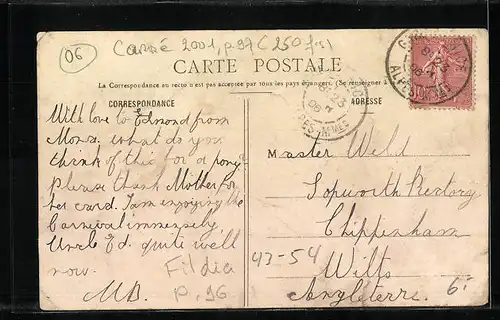 06
Carré 2001, p.97 (250 frs)
CARTE POSTALE
La Correspondance au recto n'est pas acceptée par tous les pays étrangers. (Se renseigner à
CORRESPONDANCE
ADRESSE
With love to Edmond from
Mons. what do you
think of this for a pony?
Please thank Mother for
her card. I am enjoying the
Carnival immensely
Uncle Ed. quite well
now.
MB.
Fildia
p. 96
Master Weld
Sopworth Rectory
Chippenham
Wilts
Angleterre.
43-54
6.
ALPES